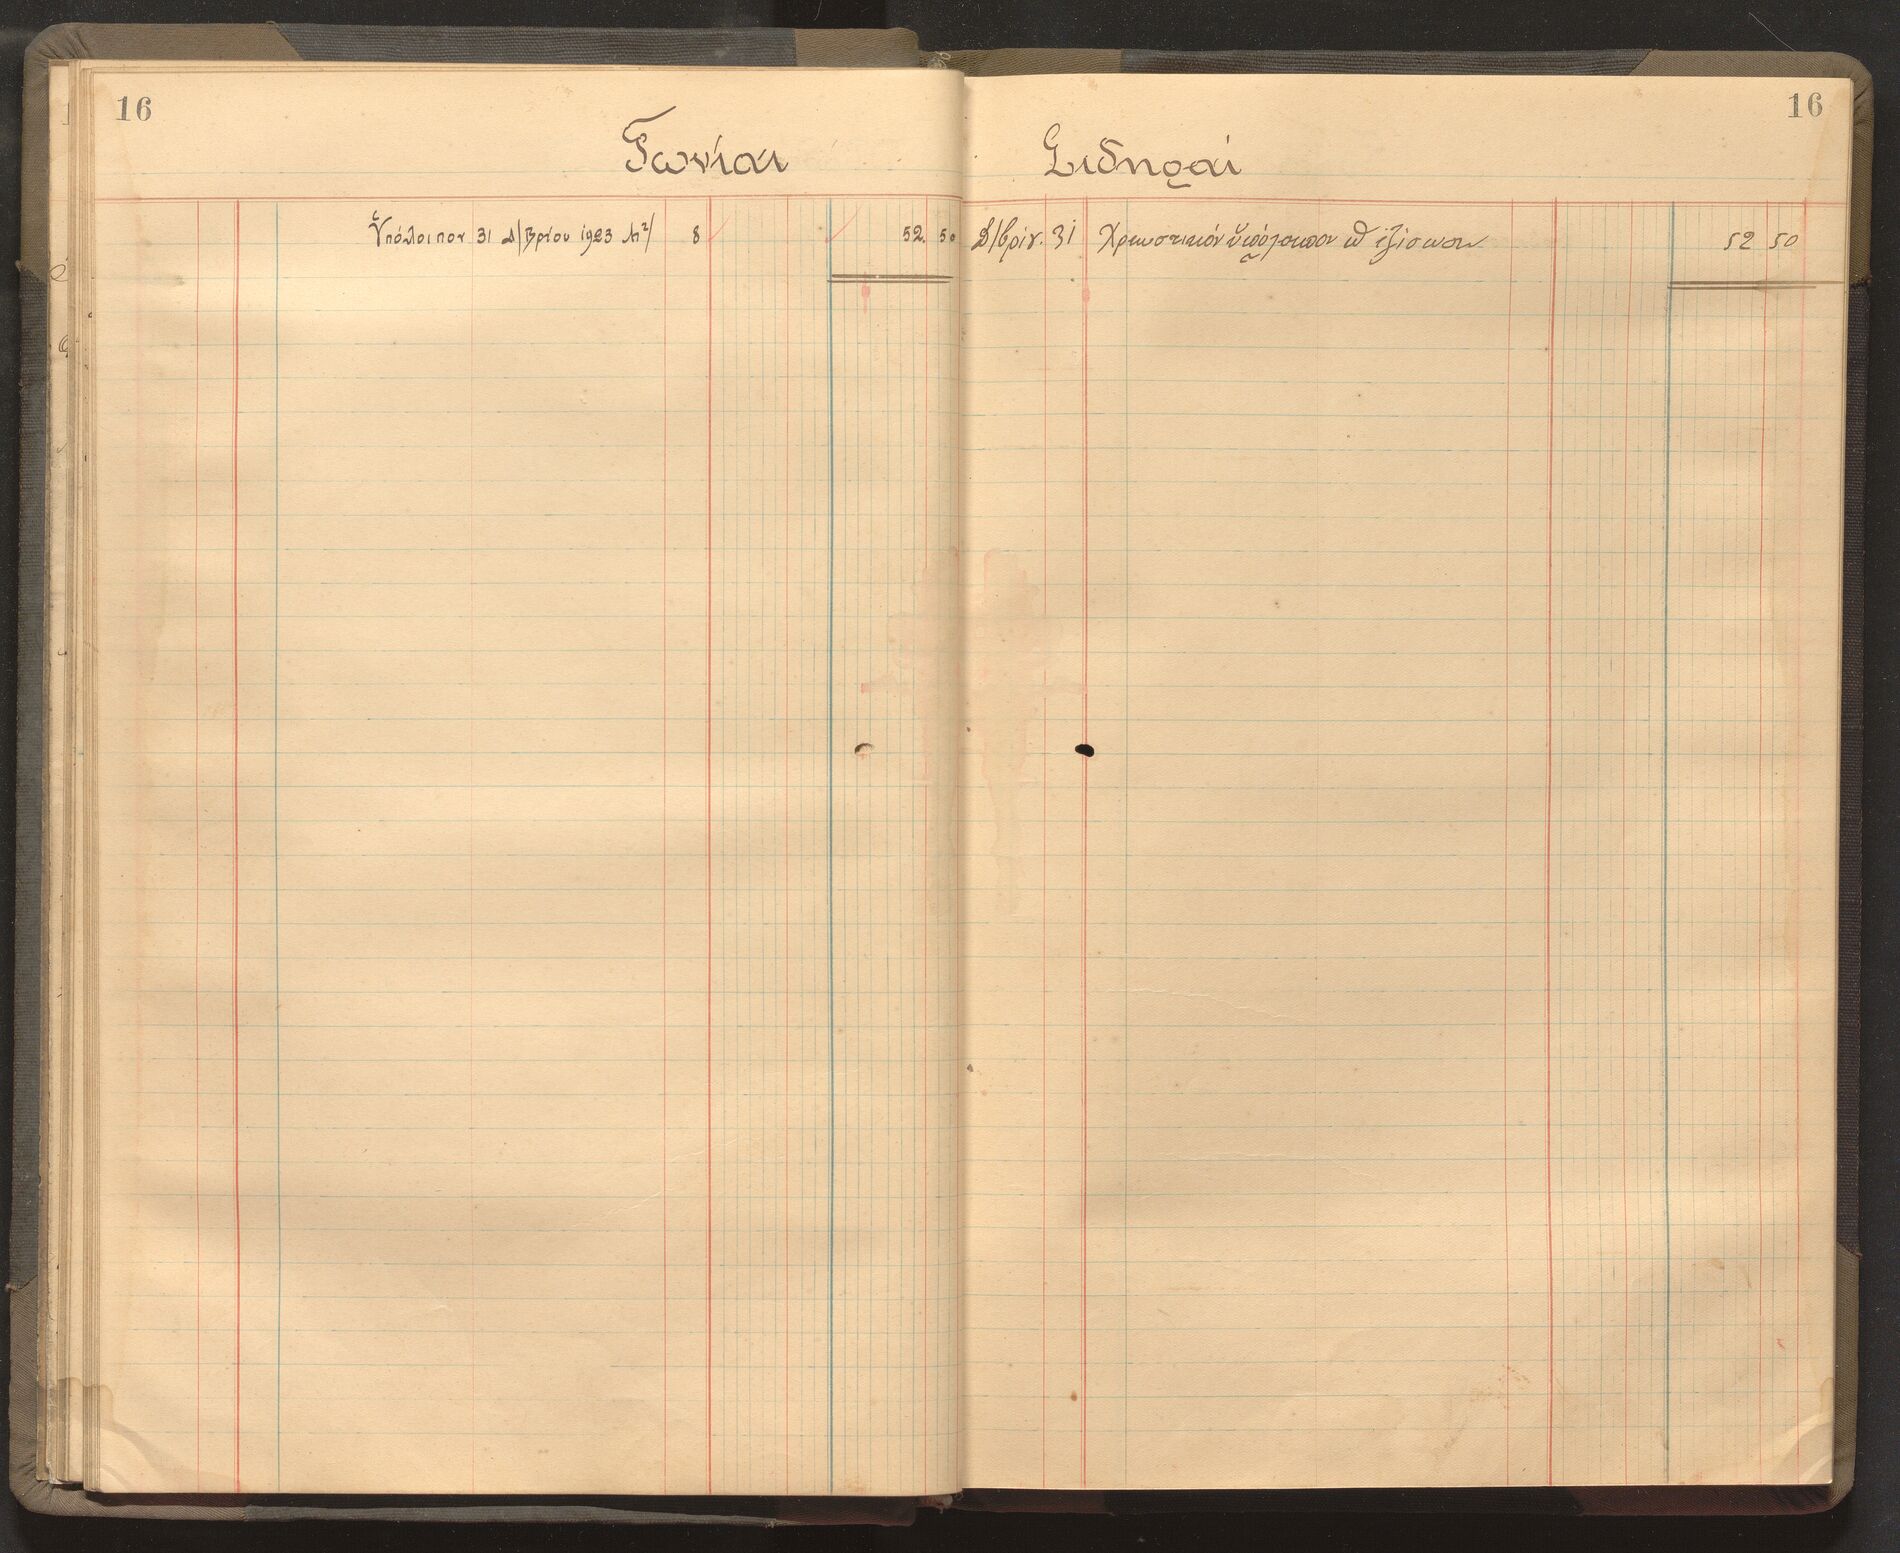 16 16
Γωνίαι Σιδηραί
Ὑπόλοιπον 31 Δ/βρίου 1923 8 52. 50
Δ/βρίου 31 Χρεωστικόν ὑπόλοιπον ἐξίσωσιν 52 50